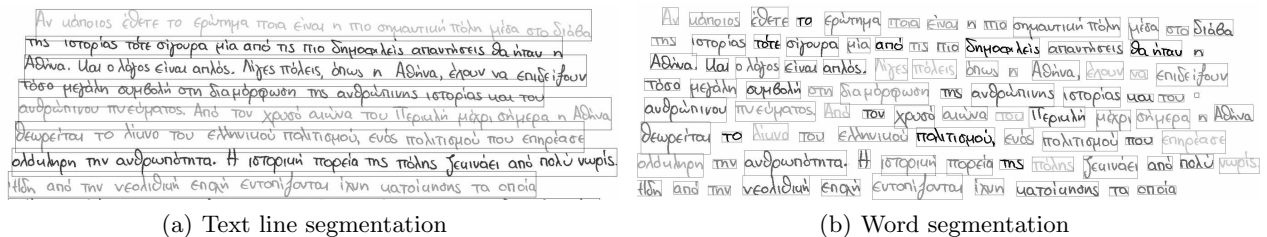 Αν κάποιος έθετε το ερώτημα ποια είναι η πιο σημαντική πόλη μέσα στο διάβα
της ιστορίας τότε σίγουρα μία από τις πιο δημοφιλείς απαντήσεις θα ήταν η
Αθήνα. Και ο λόγος είναι απλός. Λίγες πόλεις, όπως η Αθήνα, έχουν να επιδείξουν
τόσο μεγάλη συμβολή στη διαμόρφωση της ανθρώπινης ιστορίας και του
ανθρώπινου πνεύματος. Από τον χρυσό αιώνα του Περικλή μέχρι σήμερα η Αθήνα
θεωρείται το λίκνο του ελληνικού πολιτισμού, ενός πολιτισμού που επηρέασε
ολόκληρη την ανθρωπότητα. Η ιστορική πορεία της πόλης ξεκινάει από πολύ νωρίς.
Ήδη από την νεολιθική εποχή εντοπίζονται ίχνη κατοίκησης τα οποία
(a) Text line segmentation
Αν κάποιος έθετε το ερώτημα ποια είναι η πιο σημαντική πόλη μέσα στο διάβα
της ιστορίας τότε σίγουρα μία από τις πιο δημοφιλείς απαντήσεις θα ήταν η
Αθήνα. Και ο λόγος είναι απλός. Λίγες πόλεις, όπως η Αθήνα, έχουν να επιδείξουν
τόσο μεγάλη συμβολή στη διαμόρφωση της ανθρώπινης ιστορίας και του
ανθρώπινου πνεύματος. Από τον χρυσό αιώνα του Περικλή μέχρι σήμερα η Αθήνα
θεωρείται το λίκνο του ελληνικού πολιτισμού, ενός πολιτισμού που επηρέασε
ολόκληρη την ανθρωπότητα. Η ιστορική πορεία της πόλης ξεκινάει από πολύ νωρίς.
Ήδη από την νεολιθική εποχή εντοπίζονται ίχνη κατοίκησης τα οποία
(b) Word segmentation